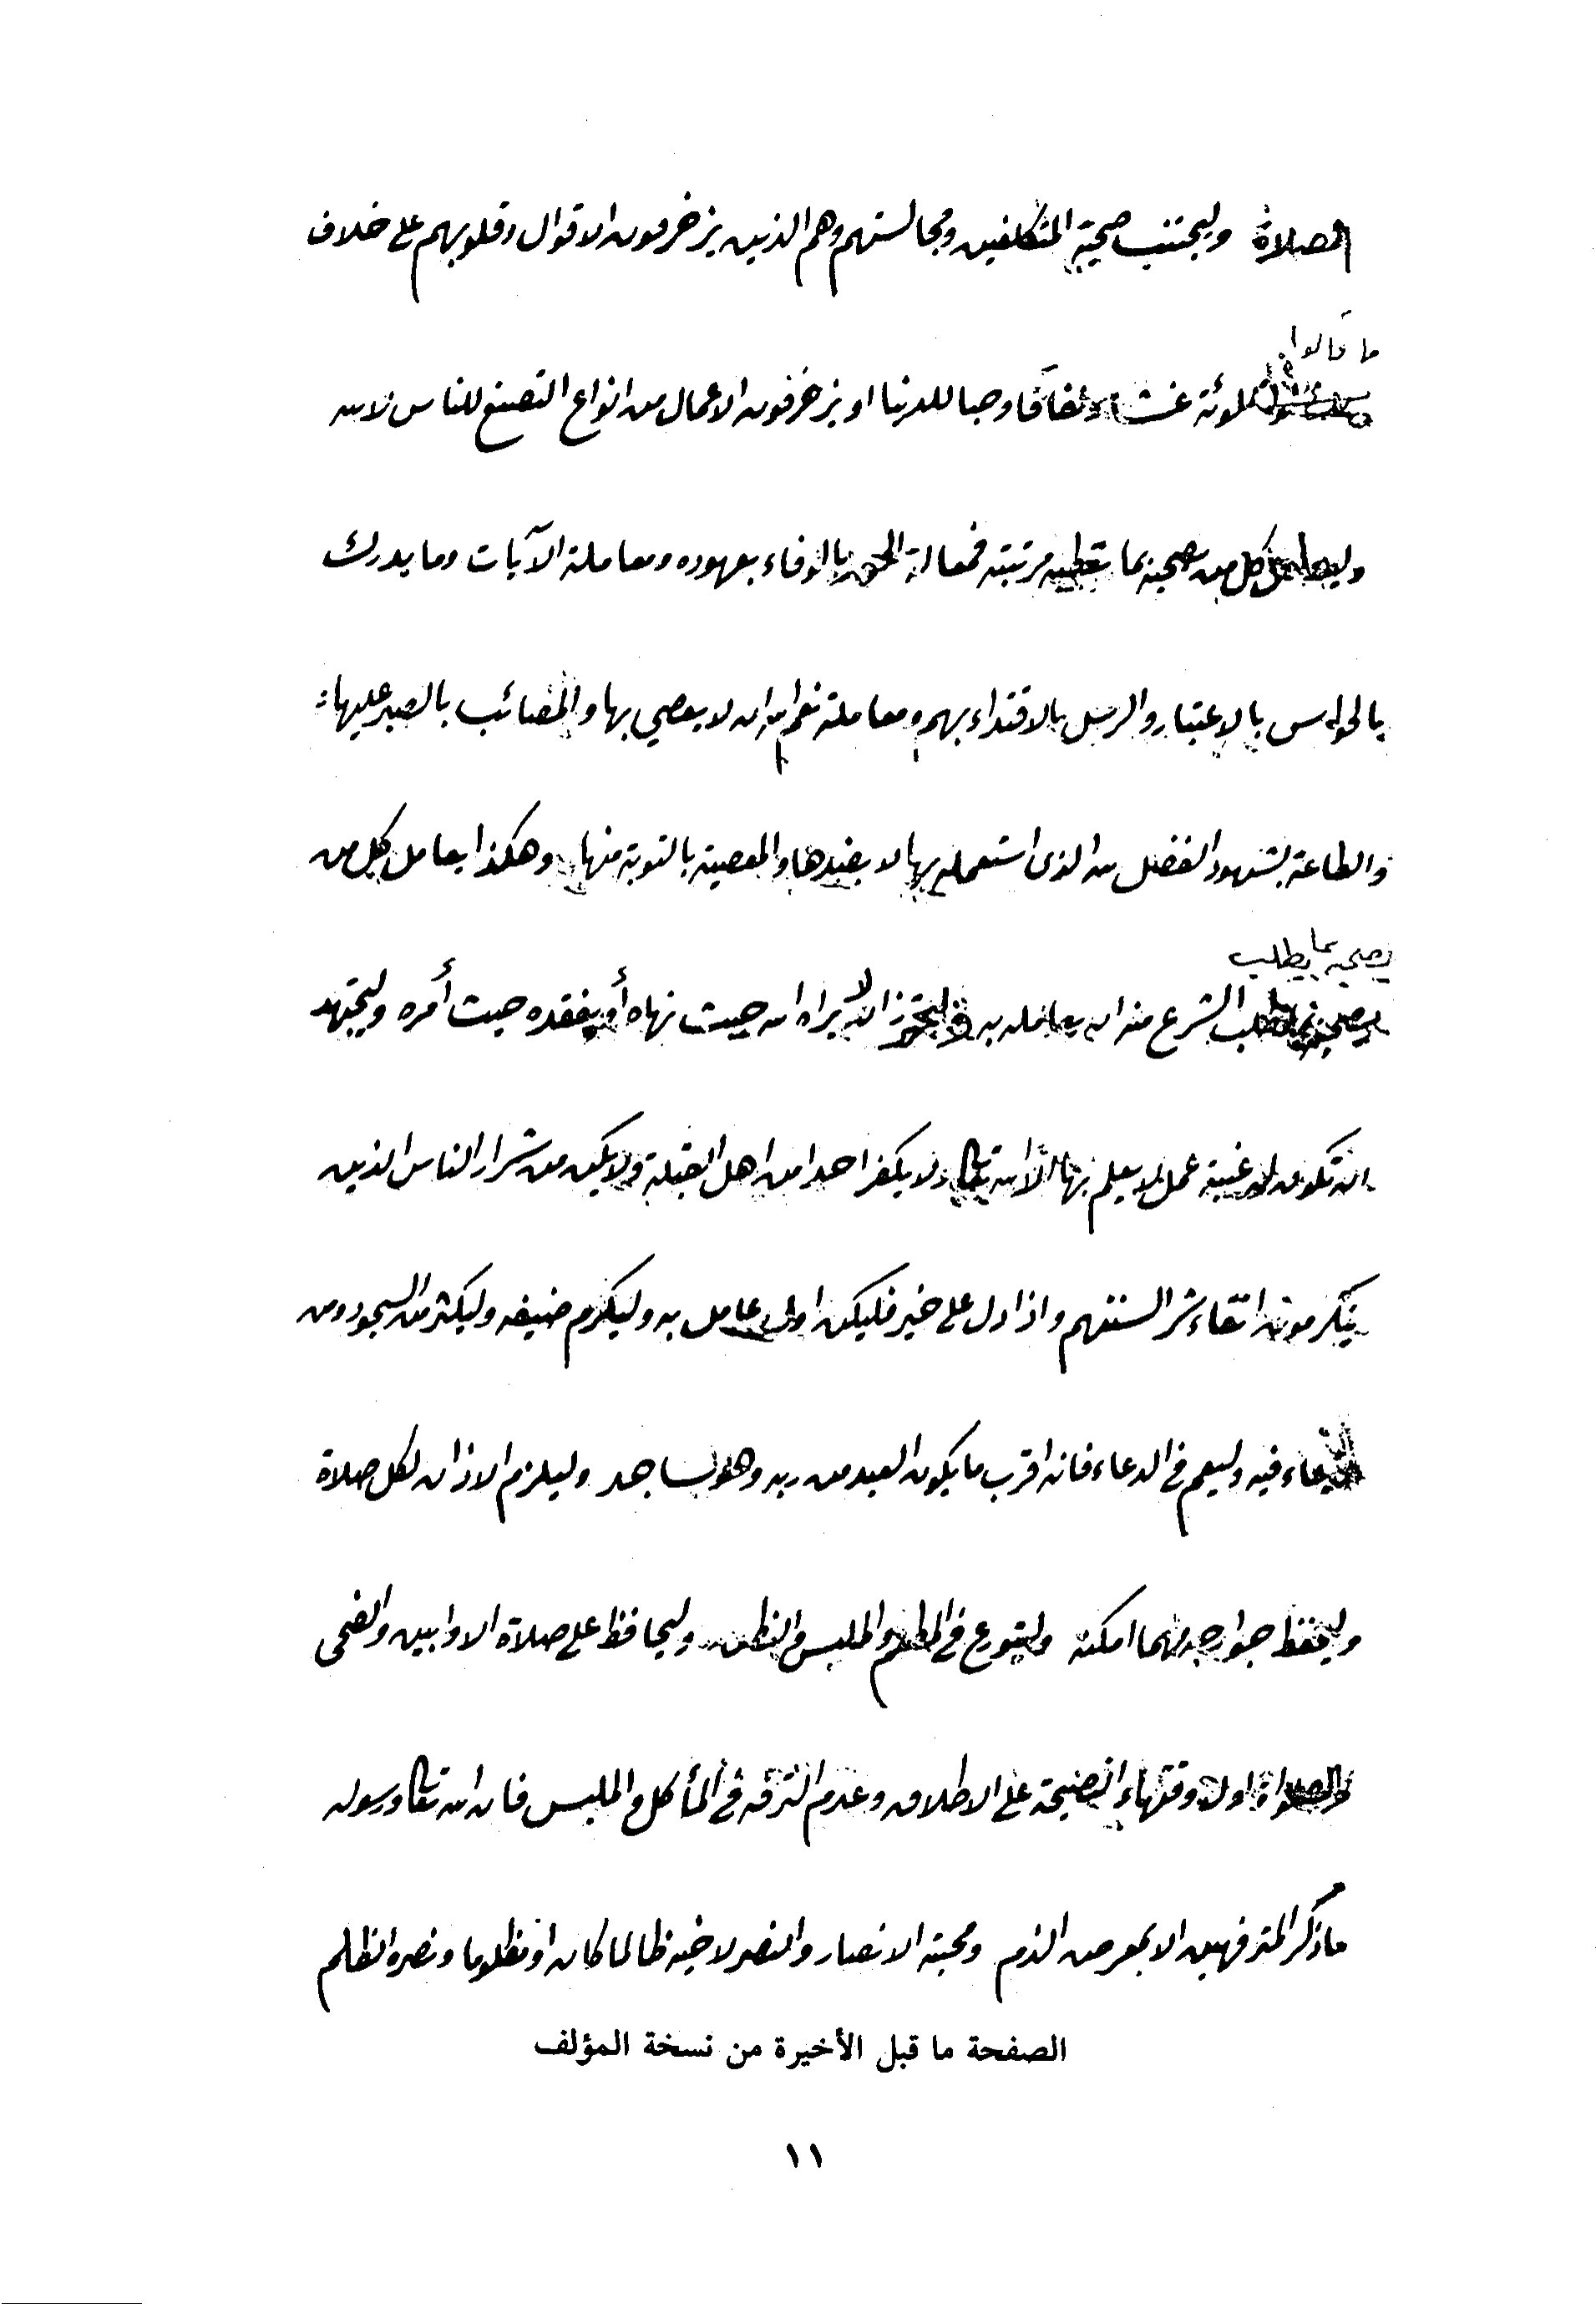 الصلاة وليجتنب صحبة المتكلفين ومجالستهم وهم الذين يزخرفون الاقوال وقلوبهم على خلاف
ما قالوا
مملوئة غشا ونفاقا وحبا للدنيا او يزخرفون الاعمال من انواع التصنع للناس لا لله
وليعامل كل من يصحبه بما تعطيه مرتبته فمعاملة الحق بالوفاء بعهوده ومعاملة الآيات وما يدرك
بالحواس بالاعتبار والرسل بالاقتداء بهم ومعاملة نعم الله ان لا يعصي بها والمصائب بالصبر عليها
والطاعة بشهود الفضل لله الذى استعمله بها لا بضدها والمعصية بالتوبة منها وهكذا يعامل كل من
يصحبه بما يطلب
الشرع منه ان يعامله به وليحترز ان لا يراه الله حيث نهاه أو يفقده حيث أمره وليجتهد
ان تكون له خبيئة عمل لا يعلم بها الا الله تعالى ولا يكفر احدا من اهل القبلة ولا يكن من شرار الناس الذين
يكرمون اتقاء شر السنتهم واذا دل على خير فليكن اول عامل به وليكرم ضيفه وليكثر من السجود ومن
الدعاء فيه وليعم في الدعاء فانه اقرب ما يكون العبد من ربه وهو ساجد وليلزم الاذان لكل صلاة
وليحفظ جوارحه مهما امكنه وليتورع في المطعم والملبس والنطق وليحافظ على صلاة الاوابين والضحى
والصلوات اول وقتها والنصيحة على الاطلاق وعدم الترفه في المأكل والملبس فان الله تعالى ورسوله
ما ذكر المترفهين الا بمعرض الذم ومحبة الانصار والنصر لاخيه ظالما كان او مظلوما ونصره الظالم
الصفحة ما قبل الأخيرة من نسخة المؤلف
١١